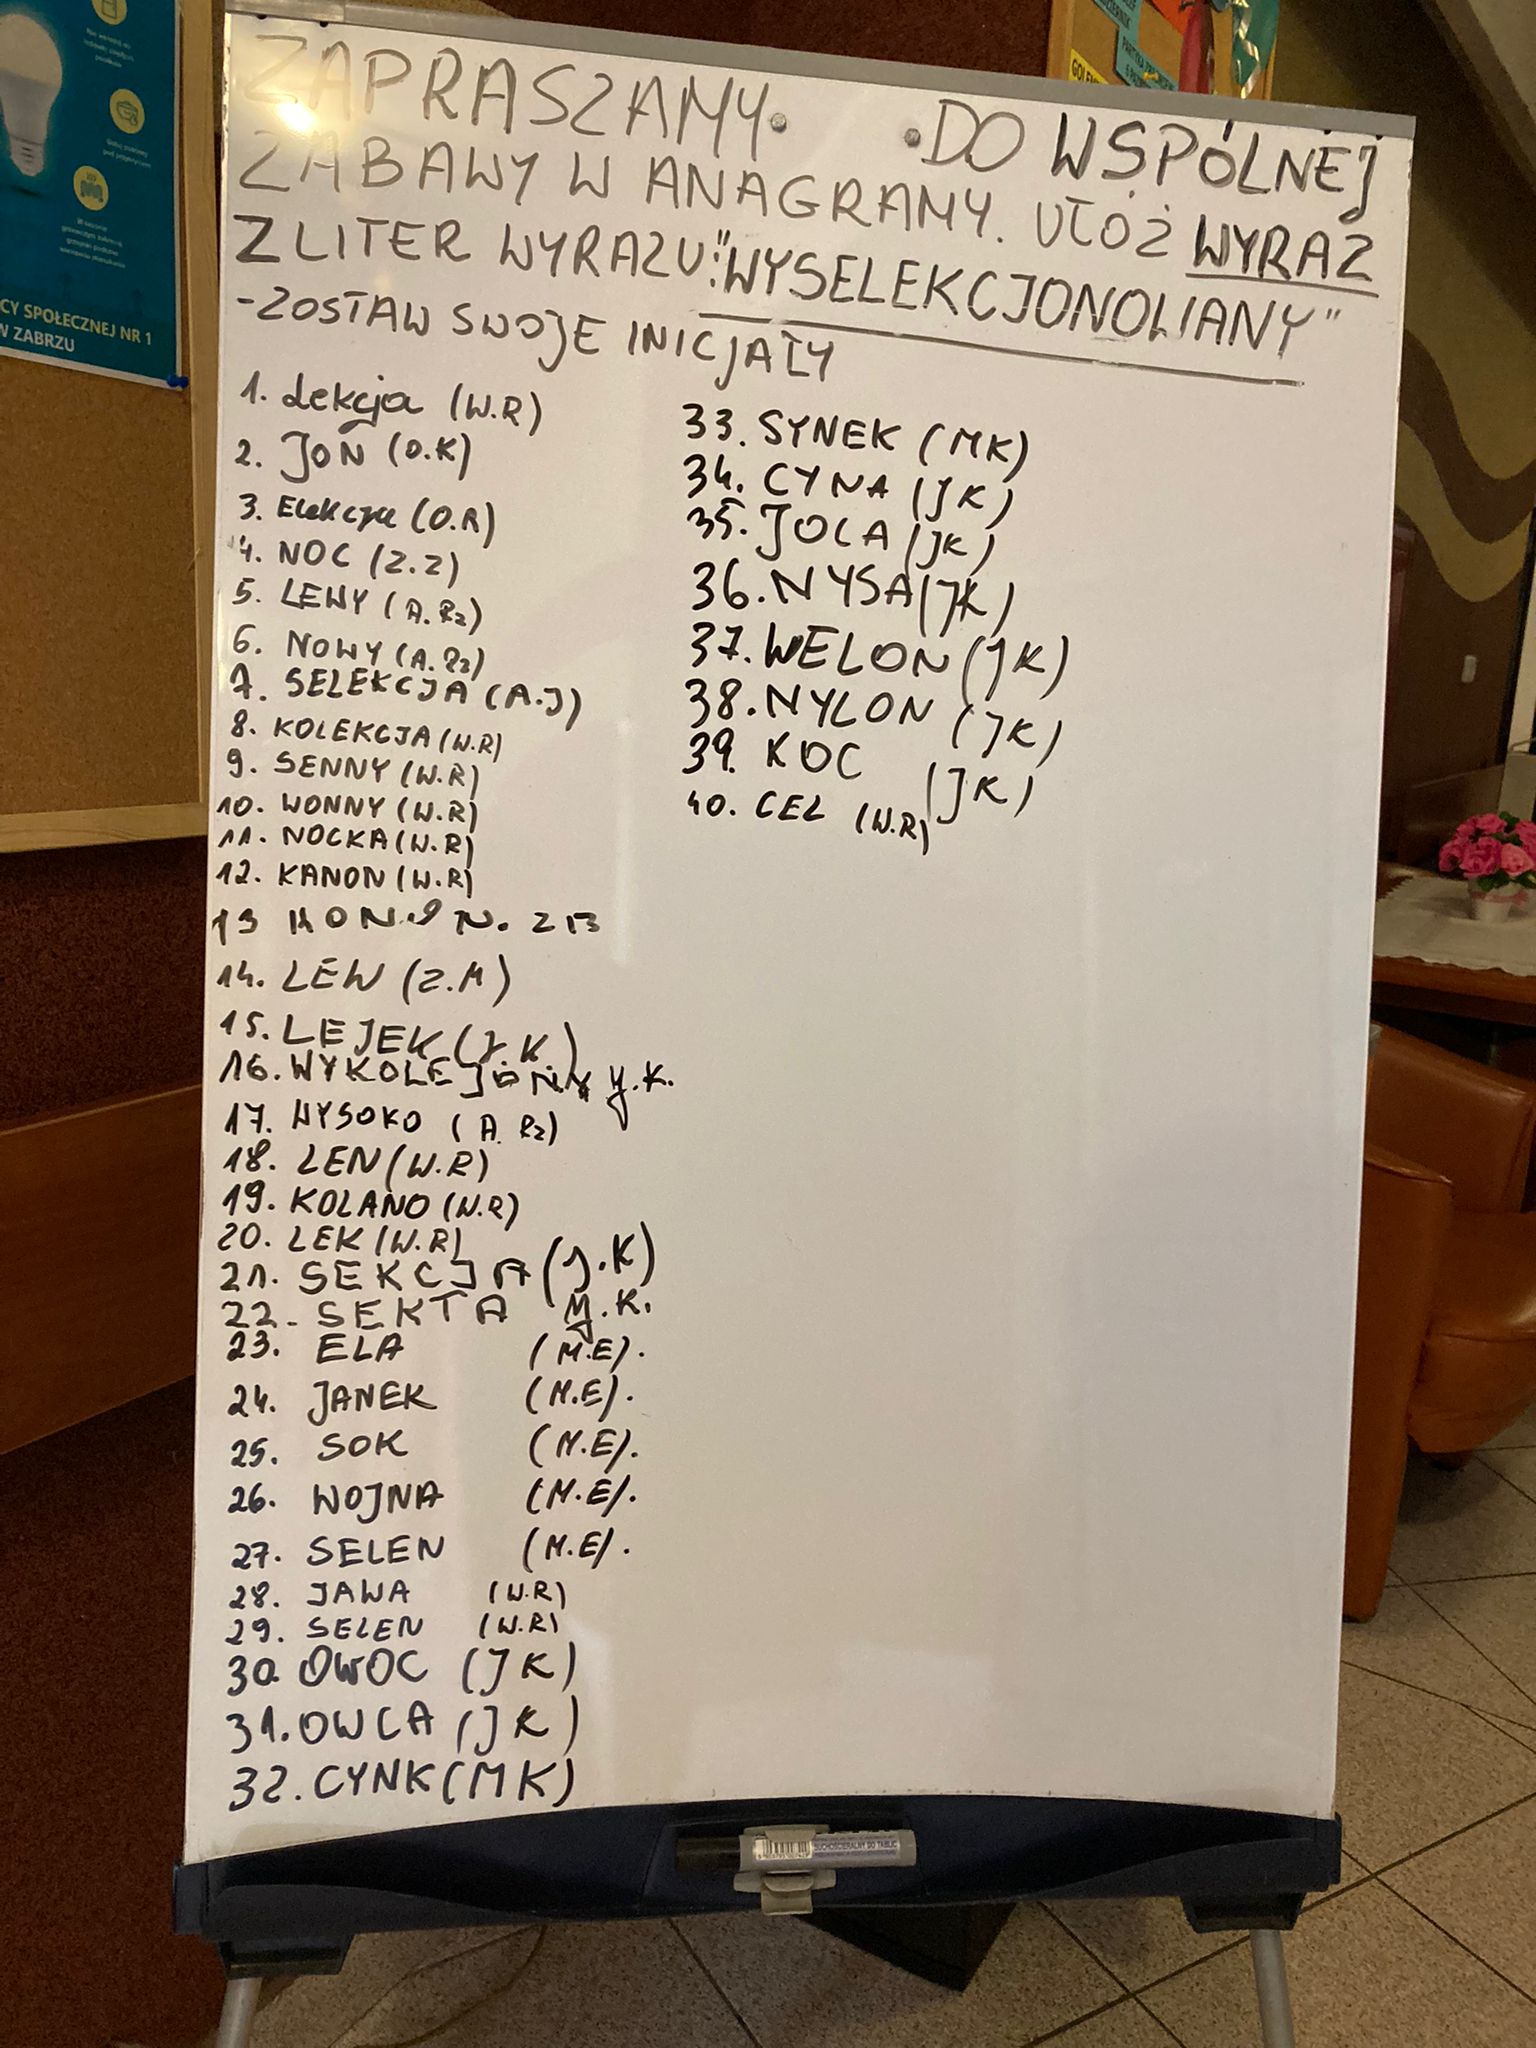 Nie wstawiaj do
lodówki ciepłych
posiłków
Gotuj potrawy
pod przykryciem
CY SPOŁECZNEJ NR 1
W ZABRZU
ZAPRASZAMY DO WSPÓLNEJ
ZABAWY W ANAGRAMY. UŁÓŻ WYRAZ
Z LITER WYRAZU: "WYSELEKCJONOWANY"
- ZOSTAW SWOJE INICJAŁY
1. Lekcja (W.R)
2. JON (O.K)
3. Elekcja (O.A)
4. NOC (Z.Z)
5. LEWY (A. Rz)
6. NOWY (A. Rz)
7. SELEKCJA (A.J)
8. KOLEKCJA (W.R)
9. SENNY (W.R)
10. WONNY (W.R)
11. NOCKA (W.R)
12. KANON (W.R)
13
14. LEW (Z.M)
15. LEJEK (J.K.)
16. WYKOLEJONY J.K.
17. WYSOKO (A. Rz)
18. LEN (W.R)
19. KOLANO (W.R)
20. LEK (W.R)
21. SEKCJA (J.K)
22. SEKTA J.K.
23. ELA (M.E).
24. JANEK (M.E).
25. SOK (M.E).
26. WOJNA (M.E).
27. SELEN (M.E).
28. JAWA (W.R)
29. SELEN (W.R)
30. OWOC (JK)
31. OWCA (JK)
32. CYNK (MK)
33. SYNEK (MK)
34. CYNA (JK)
35. JOLA (JK)
36. NYSA (JK)
37. WELON (JK)
38. NYLON (JK)
39. KOC (JK)
40. CEL (W.R)
SUCHOŚCIERALNY DO TABLIC